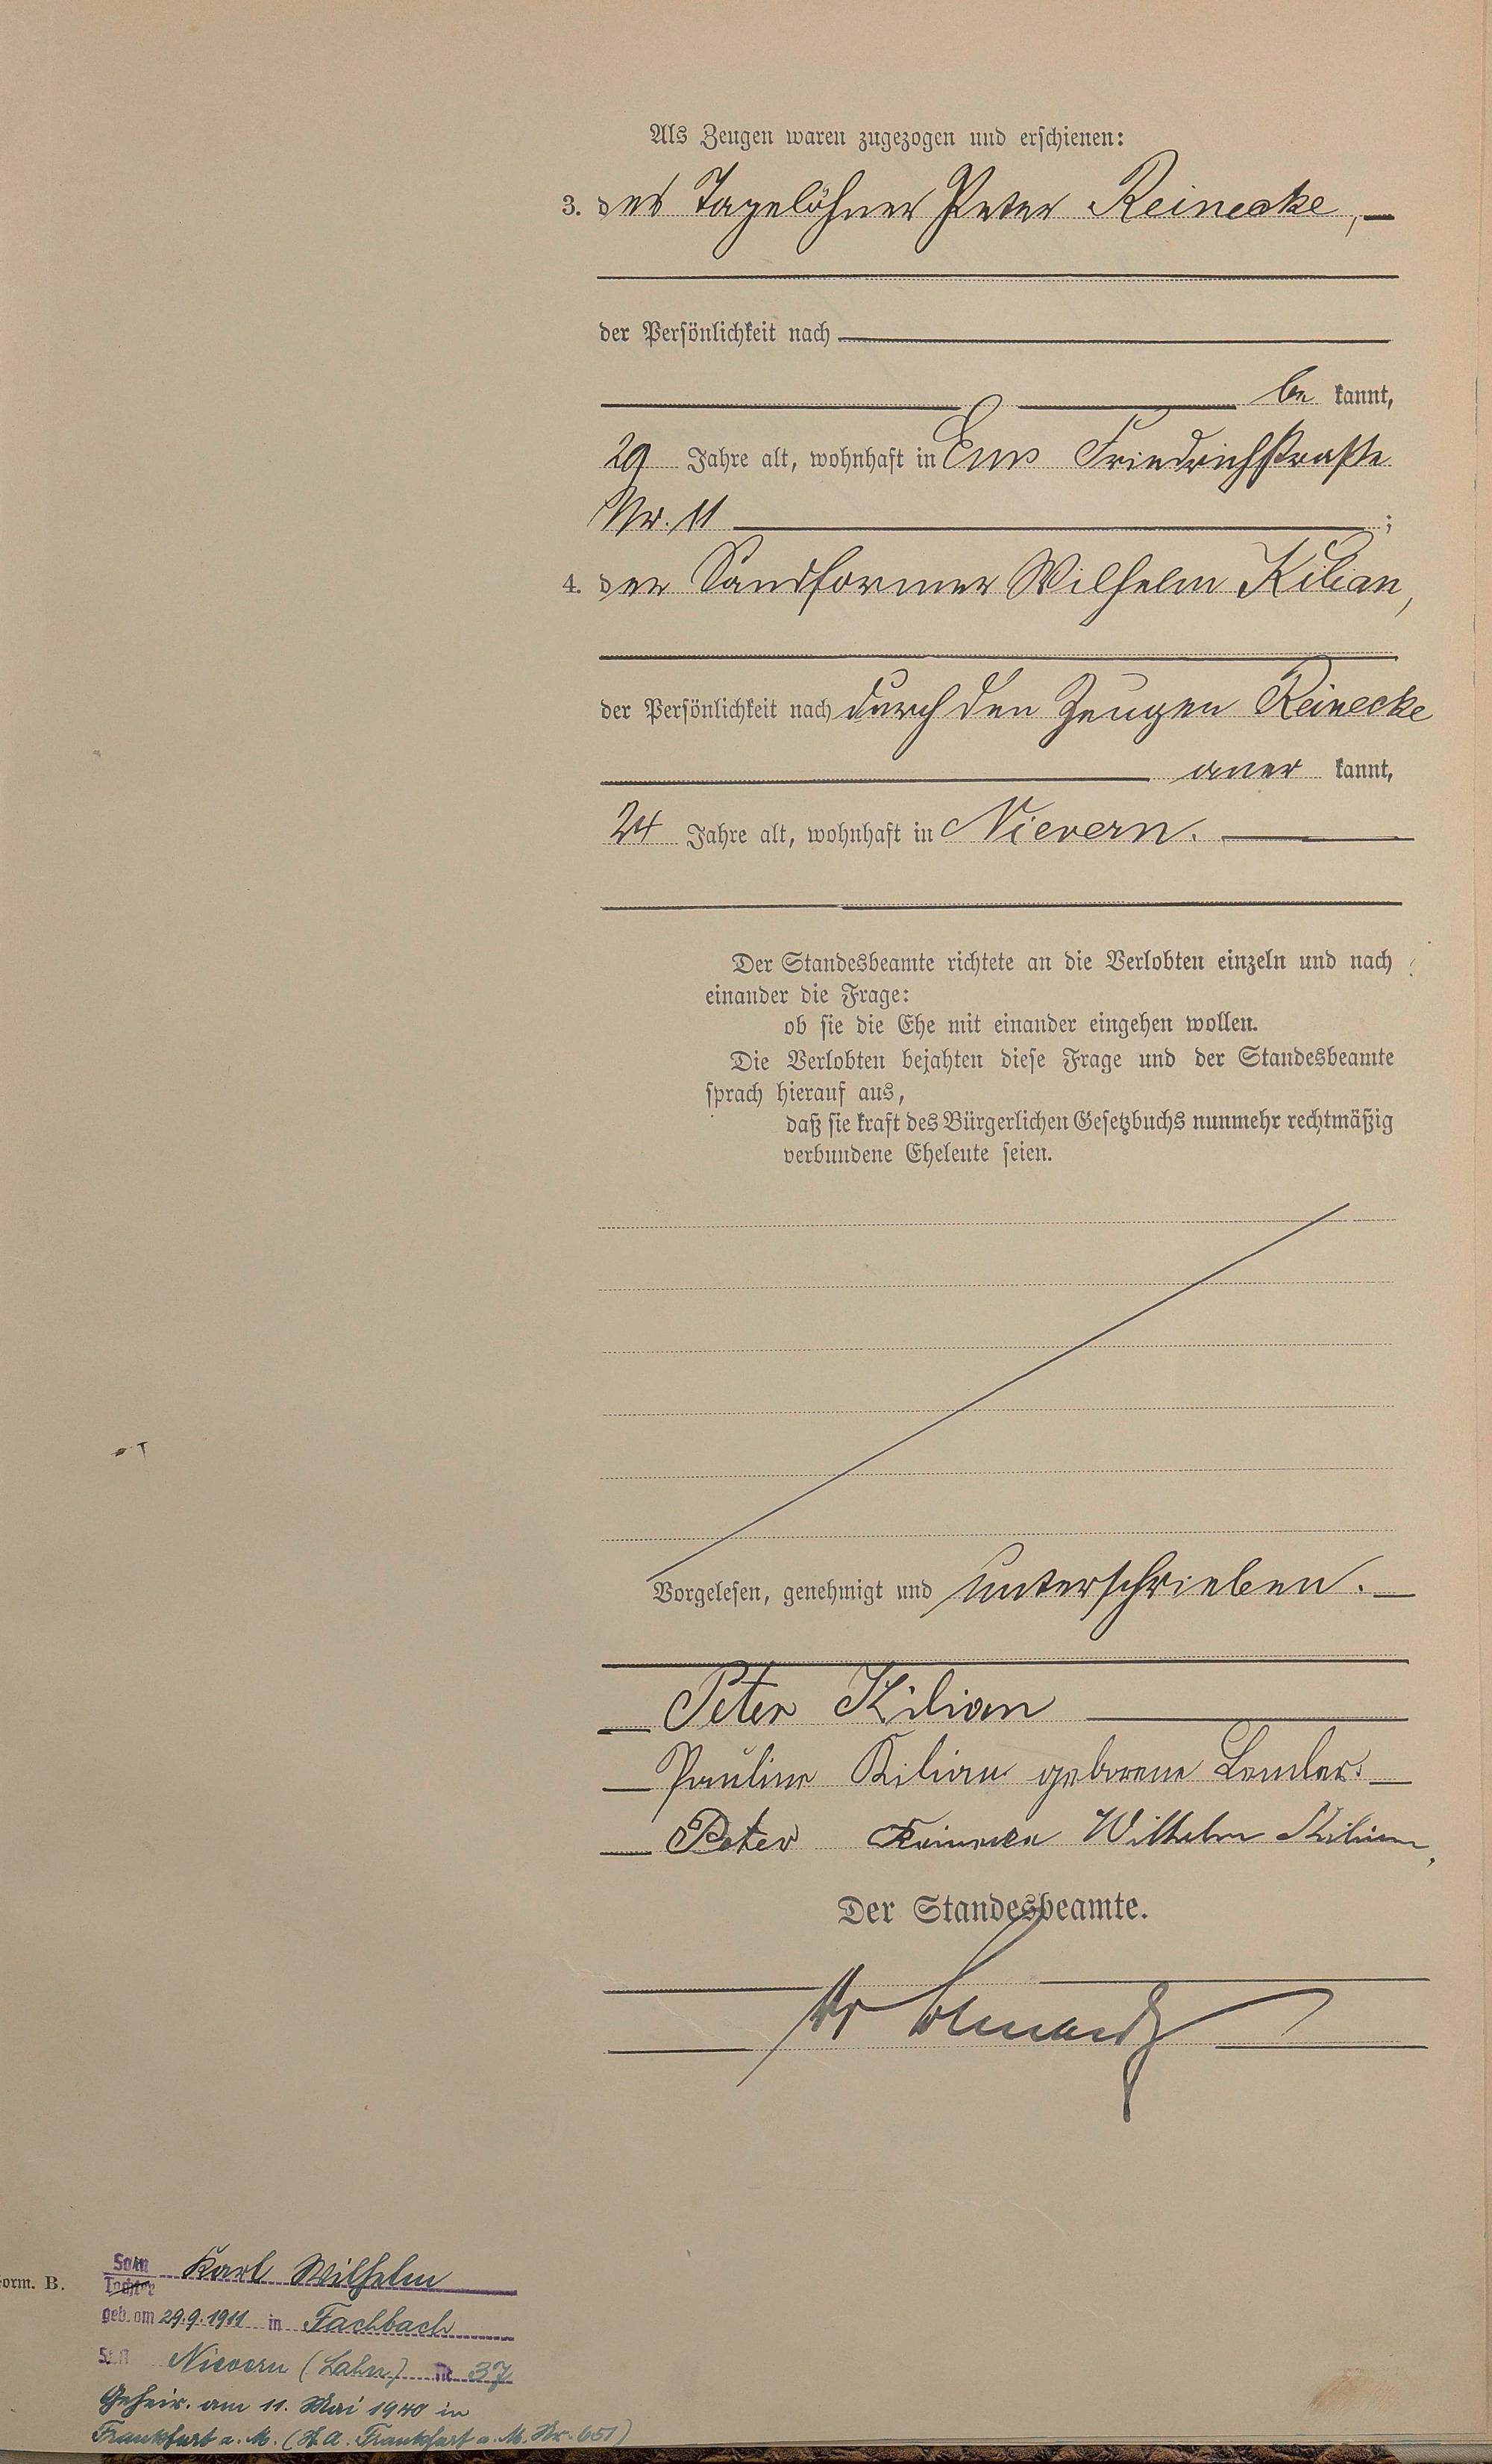 Als Zeugen waren zugezogen und erschienen:
3. der Tagelöhner Peter Reinecke,
der Persönlichkeit nach
be kannt,
29 Jahre alt, wohnhaft in Ems Friedrichstraße
Nr. 11 ;
4. der Sandformer Wilhelm Kilian,
der Persönlichkeit nach durch den Zeugen Reinecke
aner kannt,
24 Jahre alt, wohnhaft in Nievern.
Der Standesbeamte richtete an die Verlobten einzeln und nach
einander die Frage:
ob sie die Ehe mit einander eingehen wollen.
Die Verlobten bejahten diese Frage und der Standesbeamte
sprach hierauf aus,
daß sie kraft des Bürgerlichen Gesetzbuchs nunmehr rechtmäßig
verbundene Eheleute seien.
Vorgelesen, genehmigt und unterschrieben.
Peter Kilian
Pauline Kilian geborene
Peter Reinecke Wilhelm Kilian,
Der Standesbeamte.
orm. B.
Sohn Karl Wilhelm
Tochter
geb. am 29.9.1911 in Fachbach
StA Nievern (Lahn) Nr 37
Geheir. am 11. Mai 1940 in
Frankfurt a. M. (St. A. Frankfurt a. M. Nr. 651)